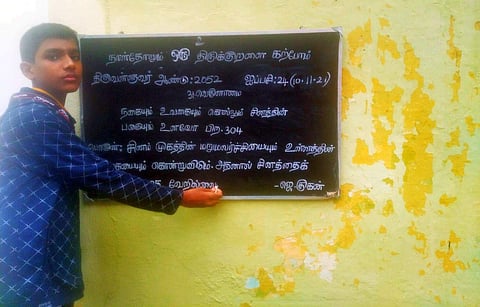 நாள்தோறும் ஒரு திருக்குறளை கற்போம்
திருவள்ளுவர் ஆண்டு: 2052 ஐப்பசி: 24 (10.11.21)
31, வெகுளாமை
நகையும் உவகையும் கொல்லும் சினத்தின்
பகையும் உளவோ பிற. 304
சினம் முகத்தின் மலர்ச்சியையும் உள்ளத்தின்
கொன்றுவிடும். அதனால் சினத்தைக்
வேறில்லை -ஜெ.முகன்